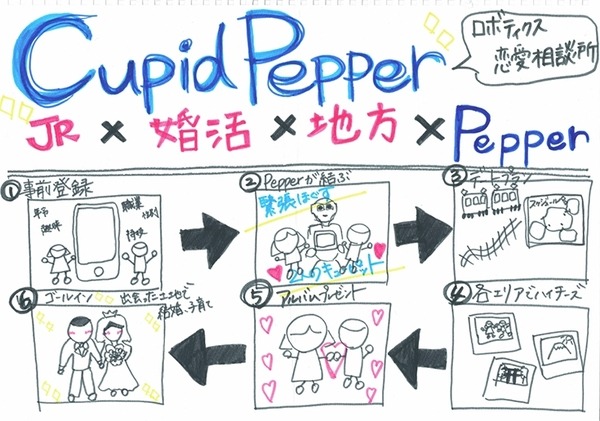 Cupid Pepper
ロボティクス
恋愛相談所
JR × 婚活 × 地方 × Pepper
①事前登録
趣味
職業
特技
②Pepperが結ぶ
緊張ほぐす
2人のキューピット
③デートプラン
スケジュール
④各エリアでハイチーズ
⑤アルバムプレゼント
⑥ゴールイン
出会った土地で
結婚、子育て